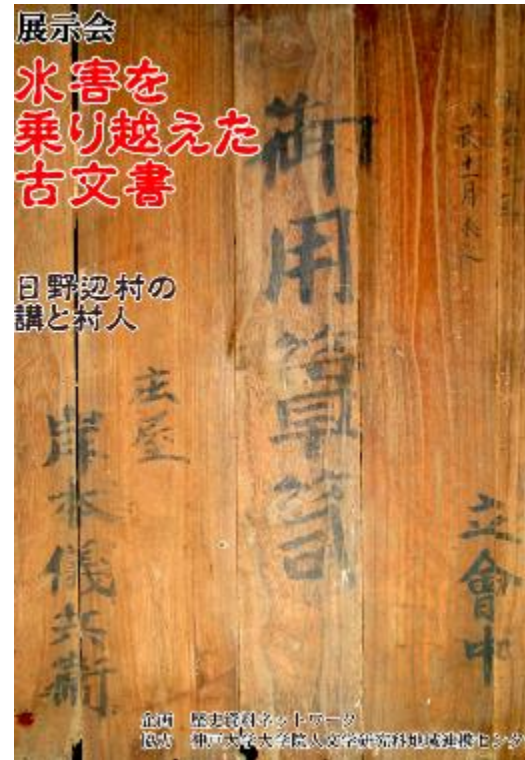 展示会
水害を
乗り越えた
古文書
日野辺村の
講と村人
辰十一月
御用箪笥
立會中
庄屋
岸本儀兵衛
企画 歴史資料ネットワーク
協力 神戸大学大学院人文学研究科地域連携センタ